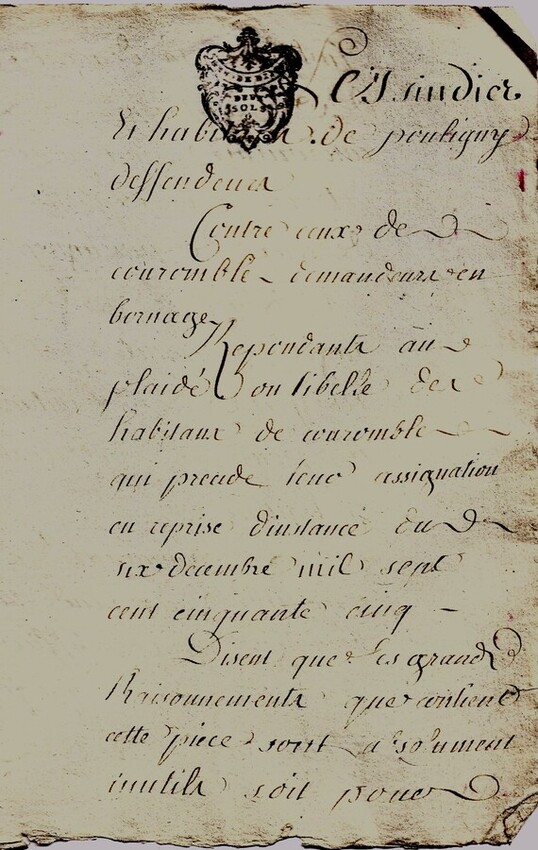 Les sindicz
Et habitans de pouligny
deffendeurs
Contre ceux de
couromble demandeurs en
bornage
Repondants au
plaidé ou libelle des
habitans de couromble
qui precede leur assignation
en reprise d'instance du
six decembre mil sept
cent cinquante cinq -
Disent que les grands
Raisonnements que contient
cette piece sont absolument
inutils soit pour